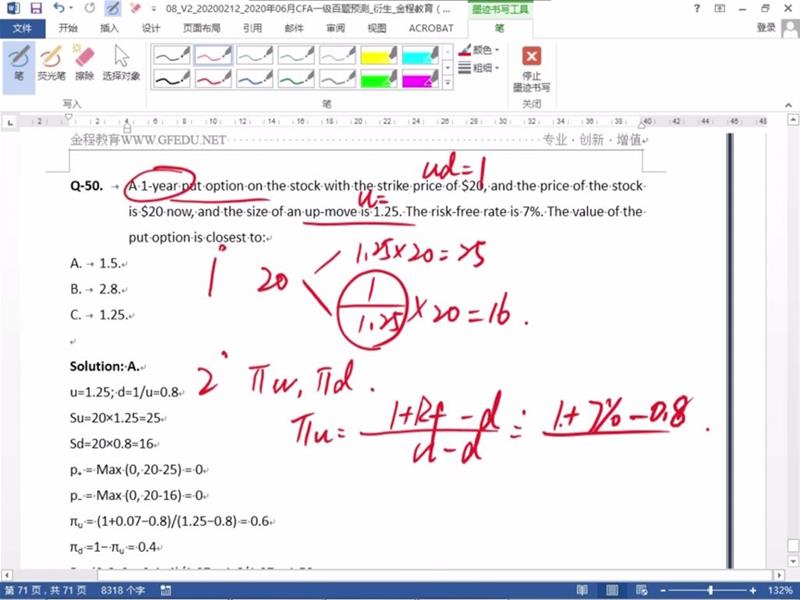 08_V2_20200212_2020年06月CFA一级百题预测_衍生_金程教育（...
墨迹书写工具
登录
文件 开始 插入 设计 页面布局 引用 邮件 审阅 视图 ACROBAT 笔
笔 荧光笔 擦除 选择对象
颜色
粗细
停止
墨迹书写
写入 笔 关闭
2 2 4 6 8 10 12 14 16 18 20 22 24 26 28 30 32 34 36 38 40 42 44 46 48
金程教育WWW.GFEDU.NET 专业·创新·增值
ud=1
Q-50. A 1-year put option on the stock with the strike price of $20, and the price of the stock
u=
is $20 now, and the size of an up-move is 1.25. The risk-free rate is 7%. The value of the
put option is closest to:
A. 1.5.
B. 2.8.
C. 1.25.
1° 20
1.25×20=25
1/1.25 ×20=16.
Solution: A.
u=1.25; d=1/u=0.8
Su=20×1.25=25
Sd=20×0.8=16
p₊ = Max (0, 20-25) = 0
p₋ = Max (0, 20-16) = 0
πu = (1+0.07−0.8)/(1.25−0.8) = 0.6
πd =1− πu = 0.4
2° πu, πd.
πu= 1+Rf-d / u-d = 1+7%-0.8
第 71 页，共 71 页 8318 个字 132%